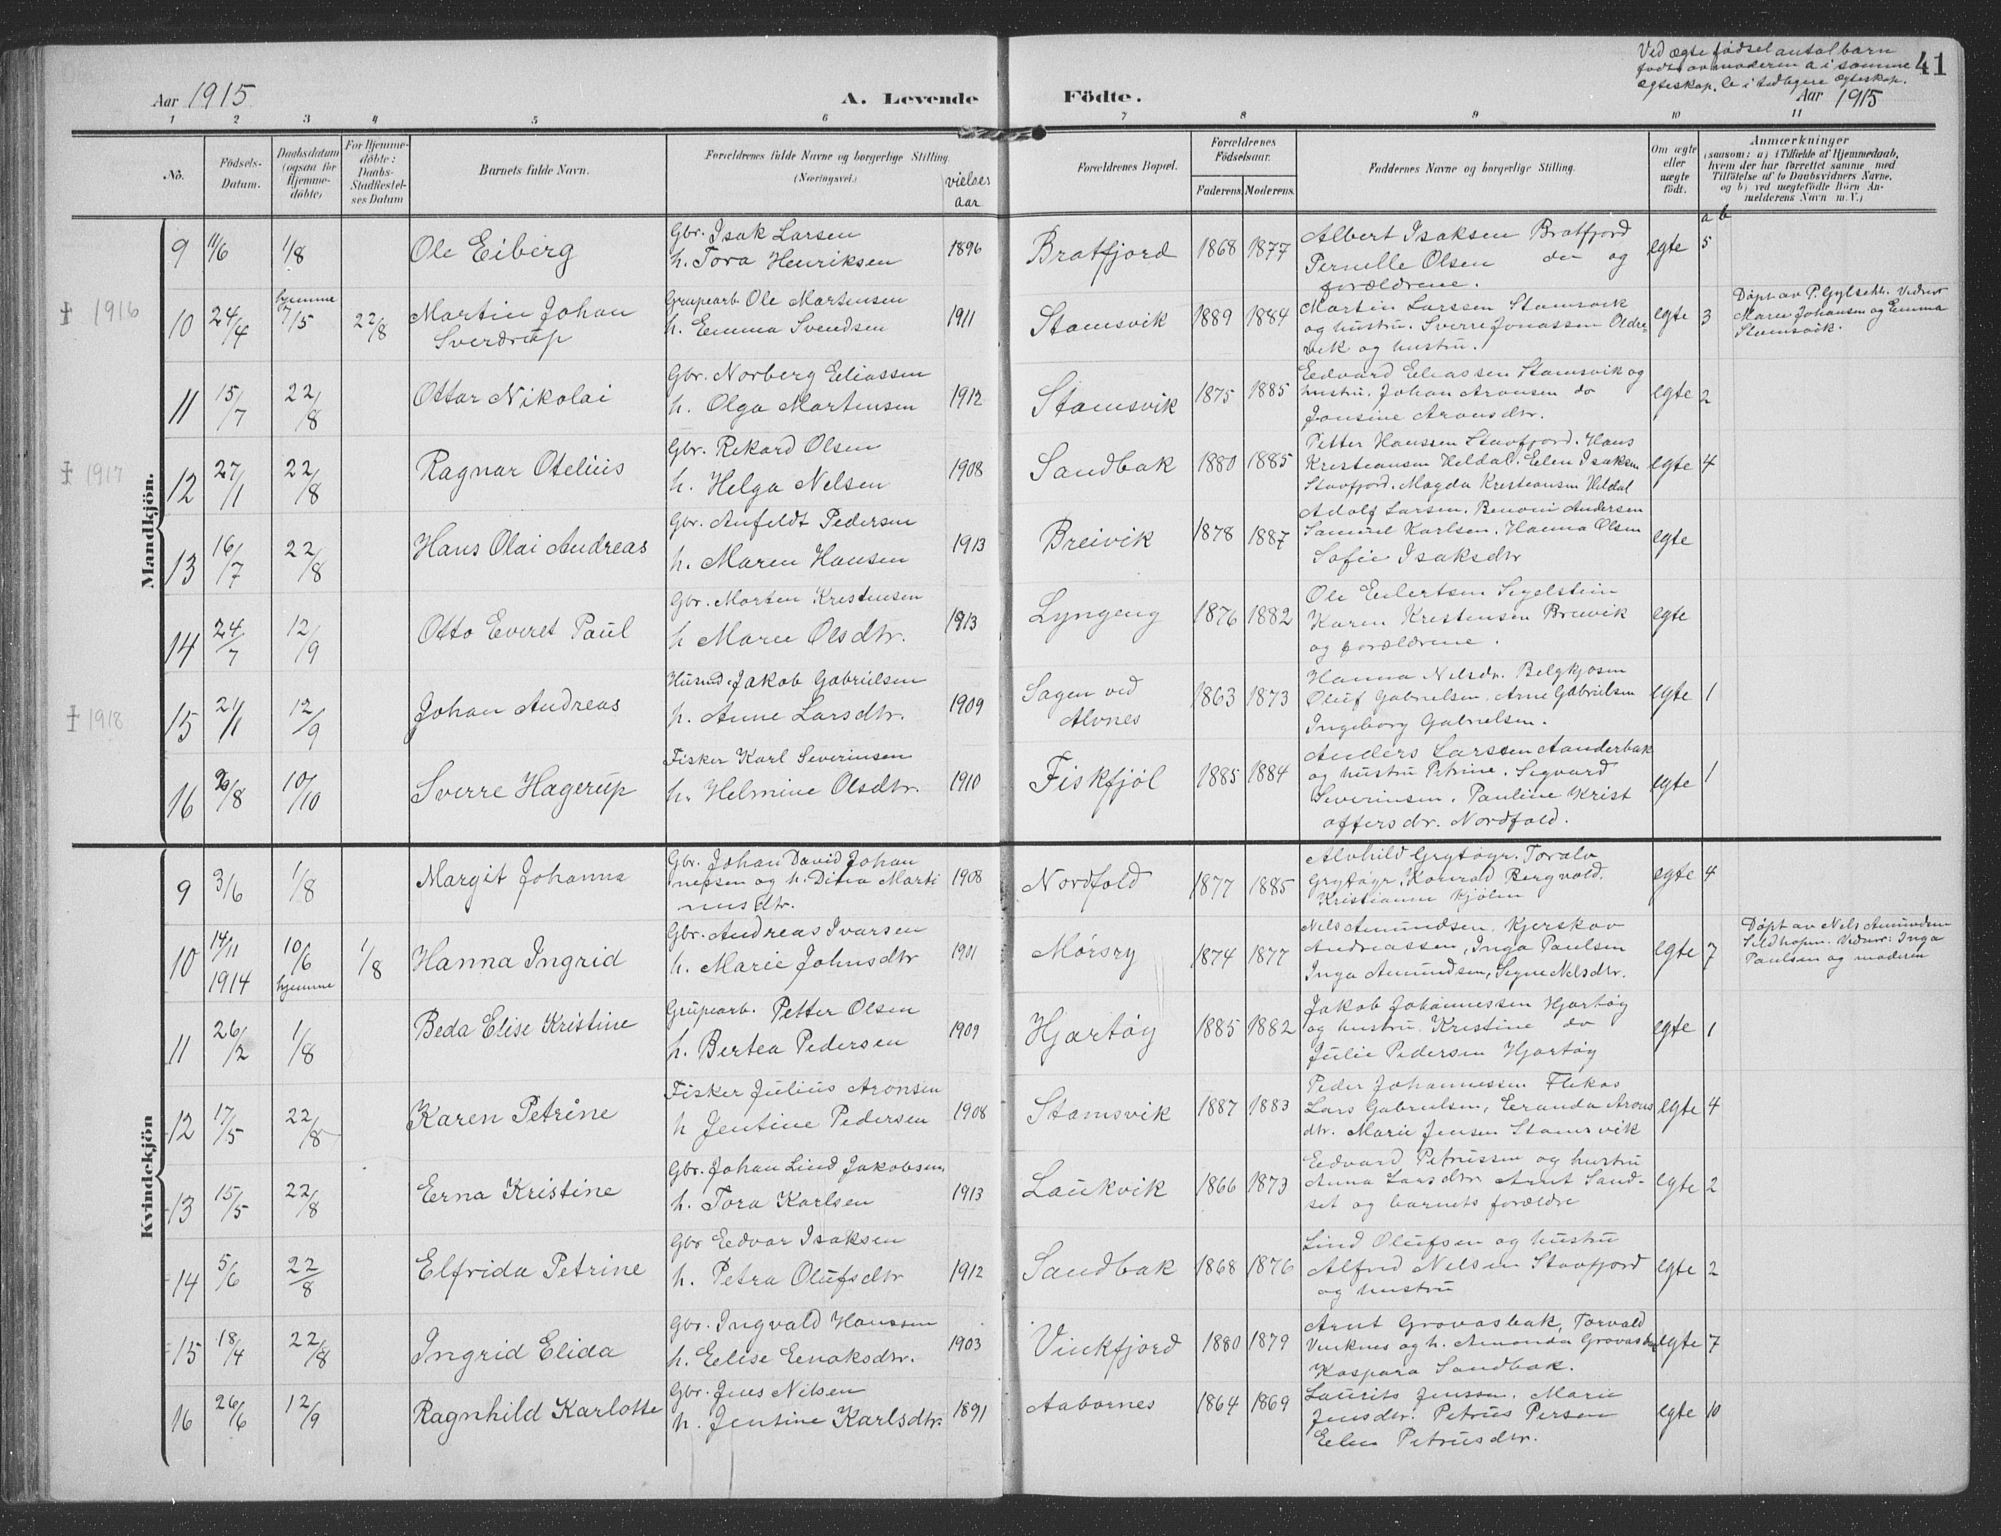 Ved ægte fødsel antal barn
født av moderen a i samme
egteskap. b i tidligere egteskap.
41
Aar 1915
A. Levende Födte.
Aar 1915
1 2 3 4 5 6 7 8 9 10 11
No.
Födsels-Datum.
Daabsdatum (ogsaa for Hjemmedöbte)
For Hjemmedöbte: Daabs-Stadfæstelses Datum
Barnets fulde Navn.
Forældrenes fulde Navne og borgerlige Stilling. (Næringsvei.)
vielses aar
Forældrenes Bopæl.
Forældrenes Födselsaar.
Faderens. Moderens.
Faddernes Navne og borgerlige Stilling.
Om ægte eller uægte födt.
Anmærkninger
(saasom: a) i Tilfælde af Hjemmedaab,
hvem der har forrettet samme med
Tilföielse af to Daabsvidners Navne,
og b) ved uægtefödte Börn Anmelderens Navn m. V.)
a b
Mandkjön.
9 11/6 1/8 Ole Eiberg Gbr. Isak Larsen h. Tora Henriksen 1896 Bratfjord 1868 1877 Albert Isaksen Bratfjord Pernelle Olsen do og forældrene. egte 5
† 1916
10 24/4 hjemme 7/15 22/8 Martin Johan Sverdrup Grupearb. Ole Martensen h. Emma Svendsen 1911 Stamsvik 1889 1884 Martin Larssen Stamsvik og hustru. Sverre Jonassen Oldrevik og hustru. egte 3 Döpt av P. Gylseth. Vidner Marie Johansen og Emma Stamsvik.
11 15/7 22/8 Ottar Nikolai Gbr. Norberg Eliassen h. Olga Martensen 1912 Stamsvik 1875 1885 Edvard Eliassen Stamsvik og hustru. Johan Aronsen do Jonsine Aronsdtr. egte 2
† 1917
12 27/1 22/8 Ragnar Otelius Gbr. Rikard Olsen h. Helga Nelsen 1908 Sandbak 1880 1885 Petter Hanssen Stavfjord. Hans Kristiansen Heldal. Elen Isaksen Stavfjord. Magda Kristiansen Heldal egte 4
13 16/7 22/8 Hans Olai Andreas Gbr. Anfeldt Pedersen h. Maren Hansen 1913 Breivik 1878 1887 Adolf Larsen. Benoni Andersen Samuel Karlsen. Hanna Olsen Sofie Isaksdtr egte
14 24/7 12/9 Otto Everet Paul Gbr. Morten Kristensen h Marie Olsdtr. 1913 Lyngeng 1876 1882 Ole Eilertsen Segelstein Karen Kristensen Breivik og forældrene. egte
† 1918
15 21/1 12/9 Johan Andreas Husmd. Jakob Gabrielsen h. Anne Larsdtr. 1909 Sagen ved Alvnes 1863 1873 Hanna Nelsdr. Belgkjosen Oluf Gabrielsen. Arne Gabrielsen Ingeborg Gabrielsen. egte 1
16 26/8 10/10 Sverre Hagerup Fisker Karl Severinsen h. Helmine Olsdtr. 1910 Fiskfjöl 1885 1884 Anders Larssen Aanderbak og hustru Petrine. Segvard Severinsen. Pauline Kristoffersdtr. Nordfold. egte 1
Kvindekjön
9 3/6 1/8 Margit Johanna Gbr. Johan David Johannessen og h. Dina Martinusdtr. 1908 Nordfold 1877 1885 Alvhild Grytöyr. Toralv Grytöyr. Konrad Bergvold. Kristianne Kjölen egte 4
10 14/11 1914 10/6 hjemme 1/8 Hanna Ingrid Gbr. Andreas Ivarsen h. Marie Johnsdtr 1901 Mörsry 1874 1877 Nels Amundsen. Kjerskav Andreassen, Inga Paulsen Inga Amundsen, Segne Nelsdtr. egte 7 Döpt av Nels Amundsen Seldhopen. Vidner: Inga Paulsen og moderen
11 26/2 1/8 Beda Elise Kristine Grupearb. Petter Olsen h. Bertea Pedersen 1909 Hjartöy 1885 1882 Jakob Johannessen Hjartöy og hustru. Kristine do Julie Pedersen Hjartöy egte 1
12 17/5 22/8 Karen Petrine Fisker Julius Aronsen h Jentine Pedersen 1908 Stamsvik 1887 1883 Peder Johannessen Flekas Lars Gabrielsen, Eranda Aronsdtr. Marie Jensen Stamsvik egte 4
13 15/5 22/8 Erna Kristine Gbr. Johan Lind Jakobsen h. Tora Karlsen 1913 Laukvik 1866 1873 Edvard Petrussen og hustru Anna Larsdtr Arnt Sandset og barnets forældre egte 2
14 5/6 22/8 Elfrida Petrine Gbr Edvar Isaksen h. Petra Olufsdtr 1912 Sandbak 1868 1876 Lind Olufsen og hustru Alfred Nelsen Stavfjord og hustru egte 2
15 18/4 22/8 Ingrid Elida Gbr. Ingvald Hanssen h. Elise Enoksdtr. 1903 Vinkfjord 1880 1879 Arnt Grovasbak, Torvald Vinknes og h. Amanda Grovasbak Kaspara Sandbak. egte 7
16 26/6 12/9 Ragnhild Karlotte Gbr. Jens Nilsen h. Jentine Karlsdtr. 1891 Aabornes 1864 1869 Laurits Jenssen. Marie Jensdtr. Petrus Persen Elen Petrusdtr. egte 10